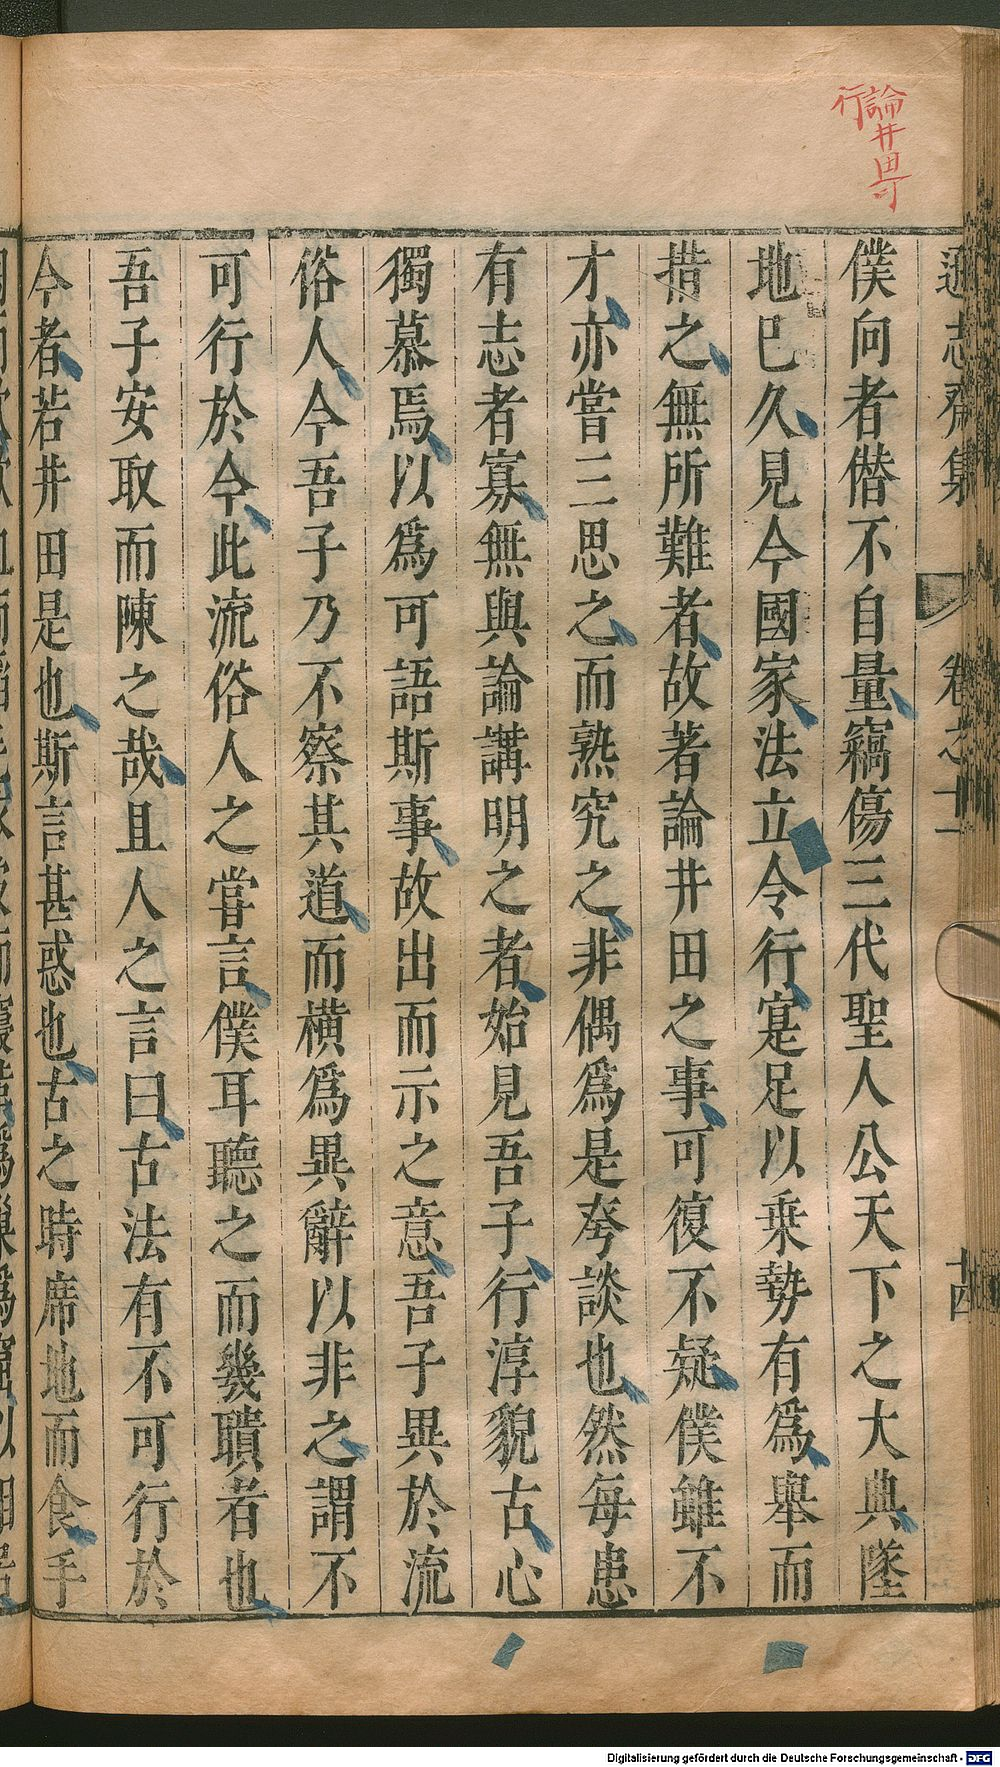 論井田可
行
遜志齋集 卷之十一 十四
僕向者僣不自量竊傷三代聖人公天下之大典墜
地已久見今國家法立令行寔足以乗勢有爲舉而
措之無所難者故著論井田之事可復不疑僕雖不
才亦嘗三思之而熟究之非偶爲是夸談也然每患
有志者寡無與論講明之者始見吾子行淳貌古心
獨慕焉以爲可語斯事故出而示之意吾子異於流
俗人今吾子乃不察其道而橫爲異辭以非之謂不
可行於今此流俗人之嘗言僕耳聽之而幾聵者也
吾子安取而陳之哉且人之言曰古法有不可行於
今者若井田是也斯言甚惑也古之時席地而食手
Digitalisierung gefördert durch die Deutsche Forschungsgemeinschaft - DFG